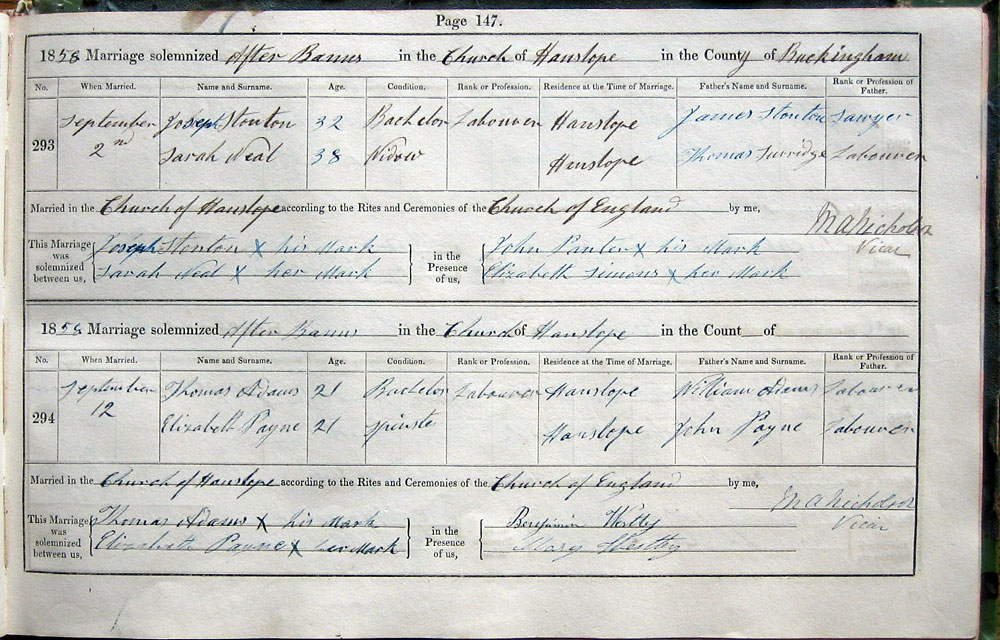 Page 147.
1858 Marriage solemnized After Banns in the Church of Hanslope in the County of Buckingham
No. When Married. Name and Surname. Age. Condition. Rank or Profession. Residence at the Time of Marriage. Father's Name and Surname. Rank or Profession of Father.
293 September 2nd Joseph Stonton 32 Bachelor Labourer Hanslope James Stonton Sawyer
Sarah Neal 38 Widow Hanslope Thomas Surridge Labourer
Married in the Church of Hanslope according to the Rites and Ceremonies of the Church of England by me,
Vicar
This Marriage was solemnized between us, Joseph Stonton X his Mark in the Presence of us, John Panter X his Mark
Sarah Neal X her Mark Elizabeth Simons X her Mark
1858 Marriage solemnized After Banns in the Church of Hanslope in the Count of
No. When Married. Name and Surname. Age. Condition. Rank or Profession. Residence at the Time of Marriage. Father's Name and Surname. Rank or Profession of Father.
294 September 12 Thomas Adams 21 Bachelor Labourer Hanslope William Adams Labourer
Elizabeth Payne 21 Spinster Hanslope John Payne Labourer
Married in the Church of Hanslope according to the Rites and Ceremonies of the Church of England by me,
Vicar
This Marriage was solemnized between us, Thomas Adams X his Mark in the Presence of us, Benjamin Westley
Elizabeth Payne X her Mark Mary Westley